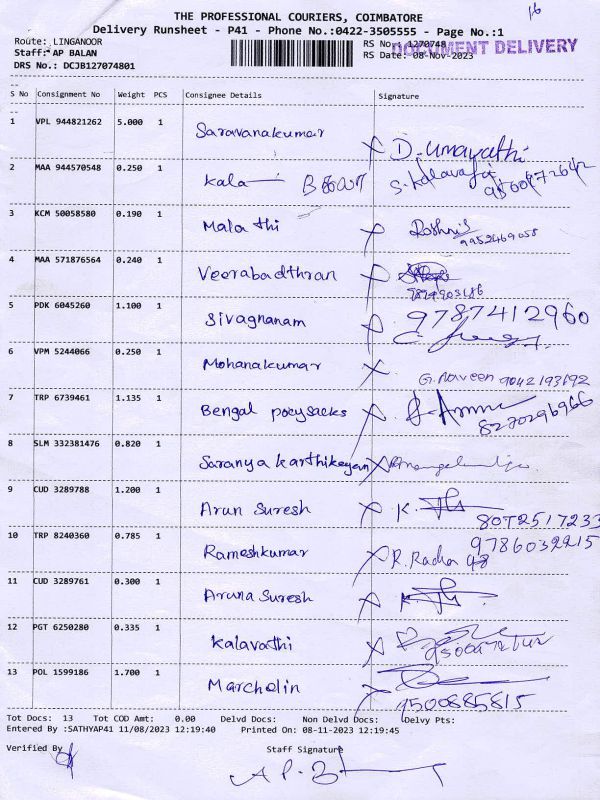 16
THE PROFESSIONAL COURIERS, COIMBATORE
Delivery Runsheet - P41 - Phone No.:0422-3505555 - Page No.:1
Route: LINGANOOR RS No.: 1270748
DOCUMENT DELIVERY
Staff: AP BALAN RS Date: 08-Nov-2023
DRS No.: DCJB127074801
S No Consignment No Weight PCS Consignee Details Signature
1 VPL 944821262 5.000 1 Saravanakumar D. Umayathi
2 MAA 944570548 0.250 1 Kala S. Kalavathi
3 KCM 50058580 0.190 1 Malathi Roshni 9952469058
4 MAA 571876564 0.240 1 Veerabadthran
5 PDK 6045260 1.100 1 Sivagnanam 9787412960
6 VPM 5244066 0.250 1 Mohanakumar G. Naveen 9042193192
7 TRP 6739461 1.135 1 Bengal polysacks 8270296966
8 SLM 332381476 0.820 1 Saranya karthikeyan
9 CUD 3289788 1.200 1 Arun Suresh K. 8072517233
10 TRP 8240360 0.785 1 Rameshkumar R. Radha 9786032215
11 CUD 3289761 0.300 1 Aruna Suresh K.
12 PGT 6250280 0.335 1 Kalavathi
13 POL 1599186 1.700 1 Marchelin 9500885815
Tot Docs: 13 Tot COD Amt: 0.00 Delvd Docs: Non Delvd Docs: Delvy Pts:
Entered By :SATHYAP41 11/08/2023 12:19:40 Printed On: 08-11-2023 12:19:45
Verified By Staff Signature
A P. B